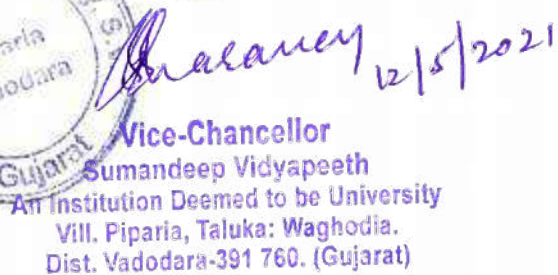 12/5/2021
Vice-Chancellor
Sumandeep Vidyapeeth
An Institution Deemed to be University
Vill. Piparia, Taluka: Waghodia.
Dist. Vadodara-391 760. (Gujarat)
Gujarat